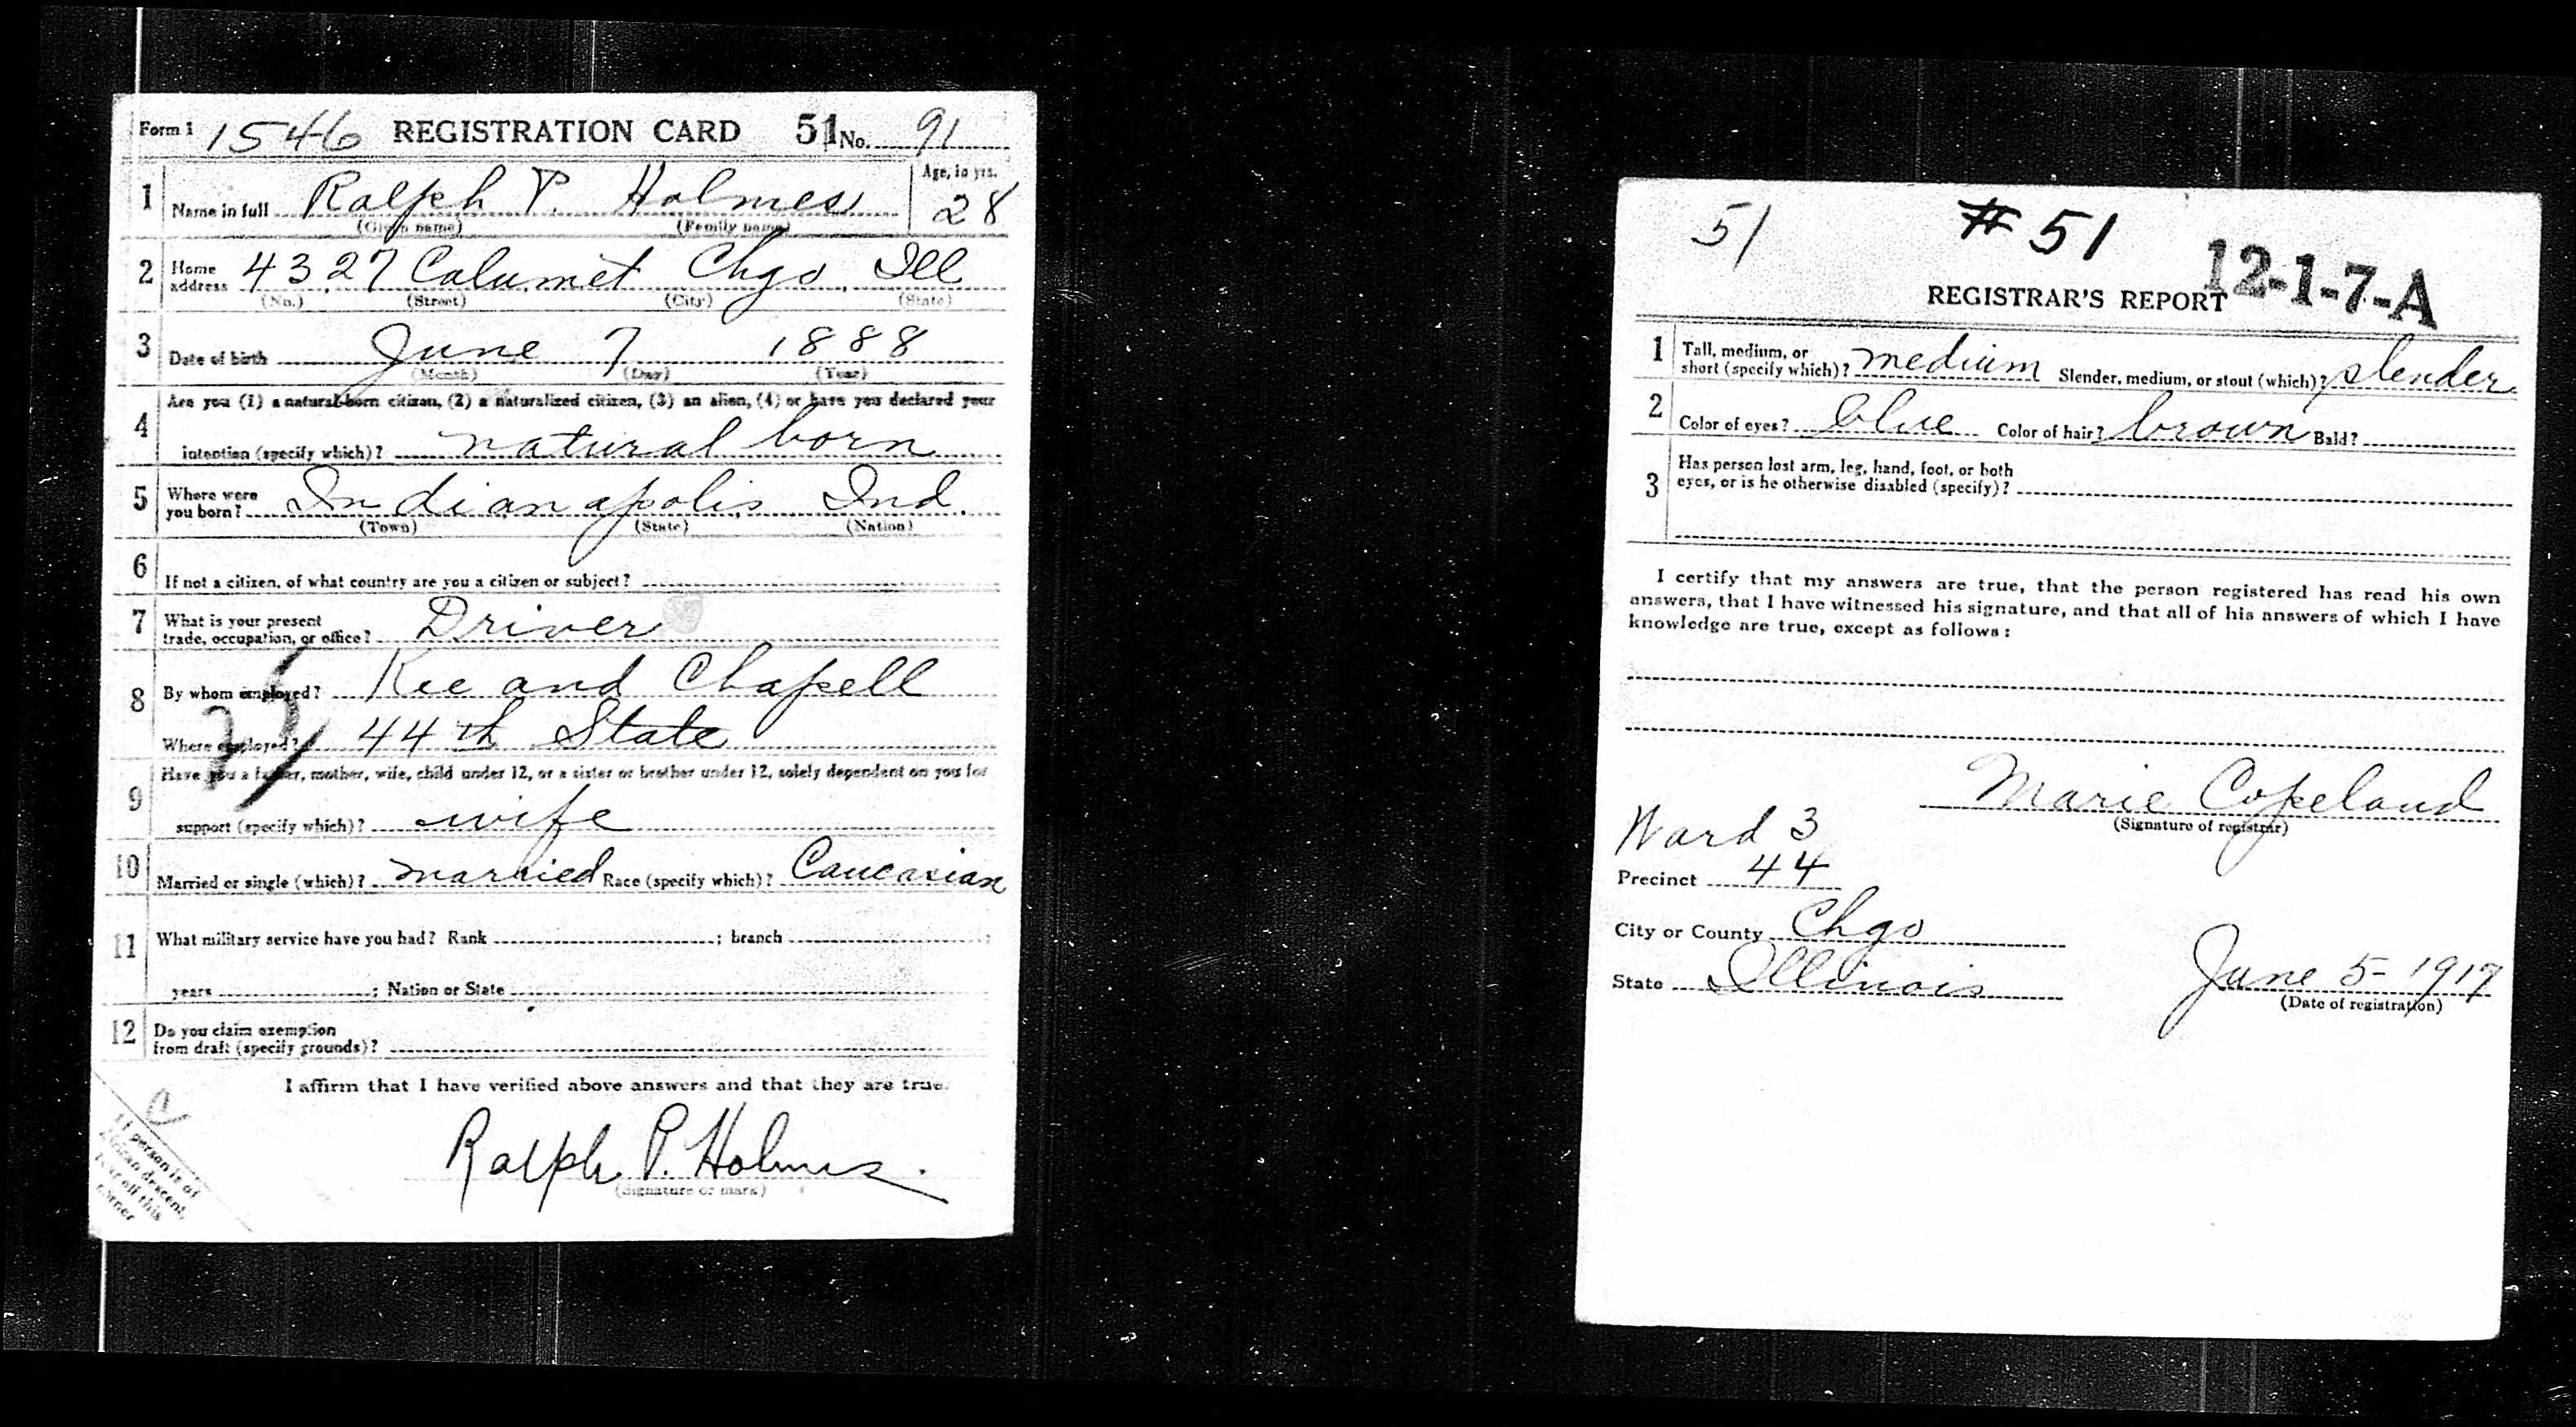 Form 1 1546 REGISTRATION CARD 51 No. 91
1 Name in full Ralph P. Holmes Age, in yrs. 28
(Given name) (Family name)
2 Home address 4327 Calumet Chgo, Ill
(No.) (Street) (City) (State)
3 Date of birth June 7 1888
(Month) (Day) (Year)
Are you (1) a natural-born citizen, (2) a naturalized citizen, (3) an alien, (4) or have you declared your
4 intention (specify which)? natural born
5 Where were you born? Indianapolis, Ind.
(Town) (State) (Nation)
6 If not a citizen, of what country are you a citizen or subject?
7 What is your present trade, occupation, or office? Driver
8 By whom employed? Kee and Chapell
Where employed? 44th State
Have you a father, mother, wife, child under 12, or a sister or brother under 12, solely dependent on you for
9 support (specify which)? wife
10 Married or single (which)? married Race (specify which)? Caucasian
11 What military service have you had? Rank ; branch ;
years ; Nation or State
12 Do you claim exemption
from draft (specify grounds)?
I affirm that I have verified above answers and that they are true.
Ralph P. Holmes.
(Signature or mark)
If person is of
African descent,
tear off this
corner
51 # 51
12-1-7-A
REGISTRAR'S REPORT
1 Tall, medium, or short (specify which)? medium Slender, medium, or stout (which)? slender
2 Color of eyes? blue Color of hair? brown Bald?
3 Has person lost arm, leg, hand, foot, or both
eyes, or is he otherwise disabled (specify)?
I certify that my answers are true, that the person registered has read his own
answers, that I have witnessed his signature, and that all of his answers of which I have
knowledge are true, except as follows:
Marie Copeland
(Signature of registrar)
Ward 3
Precinct 44
City or County Chgo
State Illinois
June 5-1917
(Date of registration)